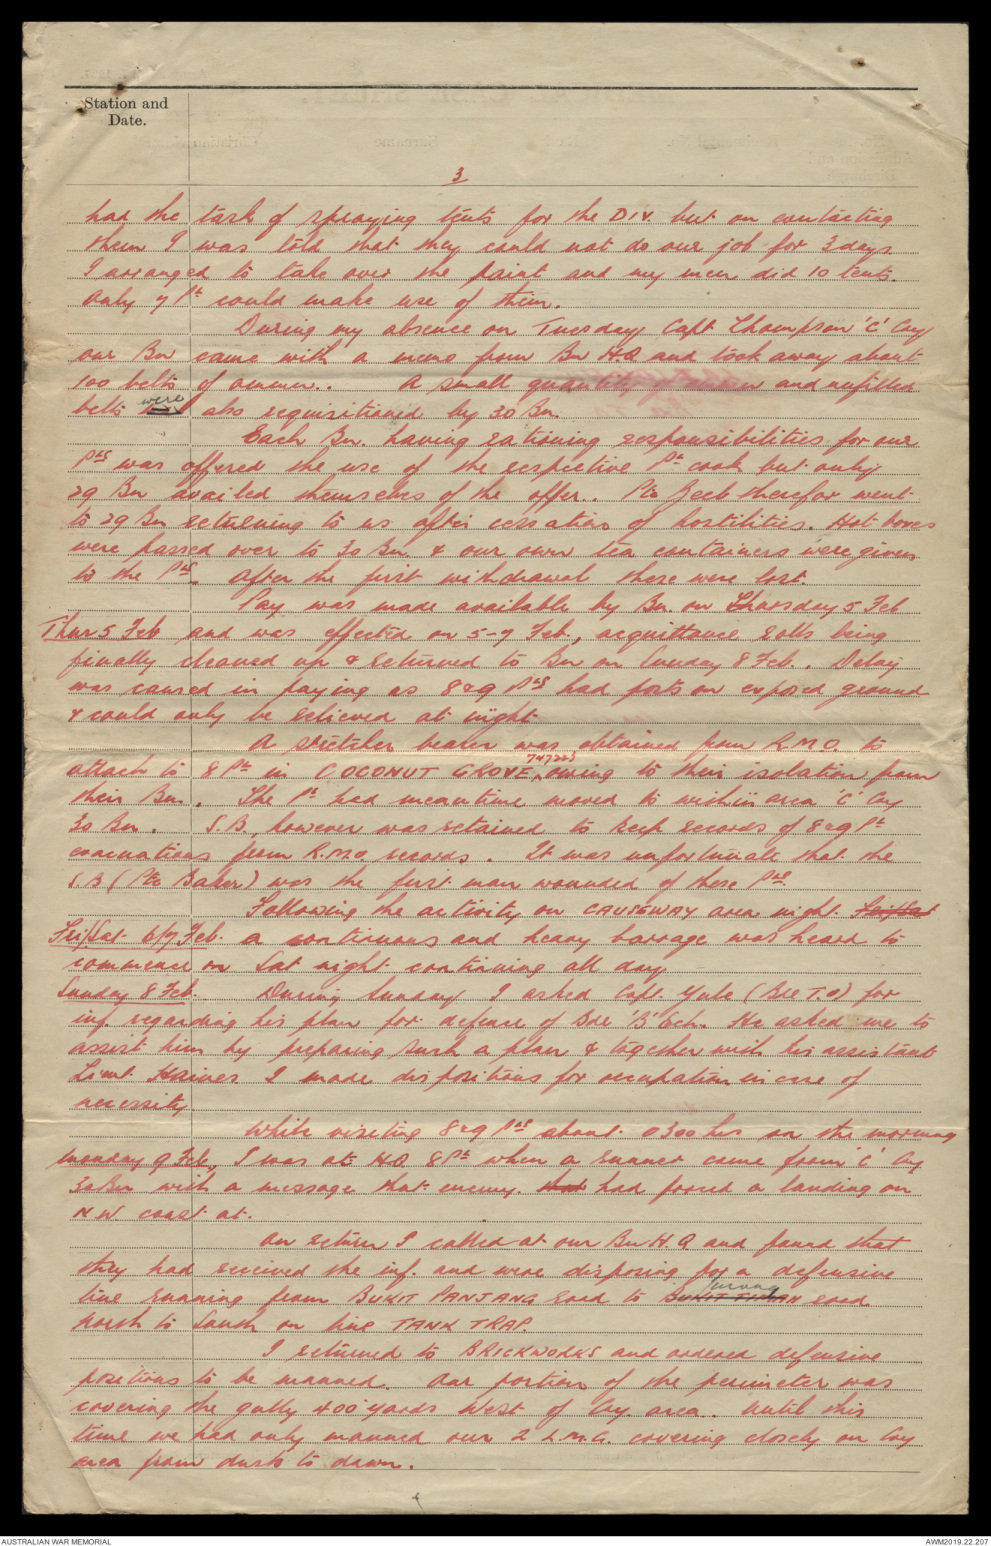 Station and
Date.
3
had the task of spraying tents for the DIV. but on contacting
them I was told that they could not do our job for 3 days
I arranged to take over the paint and my men did 10 tents.
Only 7 Pt could make use of them.
During my absence on Tuesday Capt Thompson 'C' Coy
our Bn came with a memo from Bn H.Q and took away about
100 belts of ammn.. A small quantity and unfilled
belts were also requisitioned by 30 Bn.
Each Bn. having rationing responsibilities for our
Pts was offered the use of the respective Pt cook but only
29 Bn availed themselves of the offer. Pte Beeb therefor went
to 29 Bn returning to us after cessation of hostilities. Hot boxes
were passed over to 30 Bn. & our own tea containers were given
to the Pts. After the first withdrawal these were lost.
Pay was made available by Bn. on Thursday 5 Feb
Thur 5 Feb and was effected on 5-7 Feb., acquittance rolls being
finally cleaned up & returned to Bn on Sunday 8 Feb.. Delay
was caused in paying as 8 & 9 Pts had posts on exposed ground
& could only be relieved at night.
A stretcher bearer was obtained from R.M.O. to
attach to 8 Pt in COCONUT GROVE 747223 owing to their isolation from
their Bn. The Pt had meantime moved to within area 'C' Coy
30 Bn. S.B, however was retained to keep records of 8 & 9 Pt
evacuations from R.M.O. records. It was unfortunate that the
S.B (Pte Baker) was the first man wounded of these Pts.
Following the activity on CAUSEWAY area night Fri/Sat
Fri/Sat. 6/7 Feb. a continuous and heavy barrage was heard to
commence on Sat night continuing all day
Sunday 8 Feb. During Sunday I asked Capt. Yule (Bde T.O) for
inf. regarding his plan for defence of Bde 'B' Ech. He asked me to
assist him by preparing such a plan & together with his assistant
Lieut. Haines I made dispositions for occupation in case of
necessity.
While visiting 8 & 9 Pts about 0300 hrs on the morning
Monday 9 Feb, I was at H.Q. 8 Pt when a runner came from 'C' Coy
30 Bn with a message that enemy. that had forced a landing on
N.W. coast at.
On return I called at our Bn H.Q. and found that
they had received the inf. and were disposing for a defensive
line running from BUKIT PANJANG road to BUKIT TIMAH Jurong road
North to South on line TANK TRAP.
I returned to BRICKWORKS and ordered defensive
positions to be manned. Our portion of the perimeter was
covering the gully 400 yards West of Coy area. Until this
time we had only manned our 2 L.M.G. covering closely on Coy
area from dusk to dawn.
AUSTRALIAN WAR MEMORIAL
AWM2019.22.207